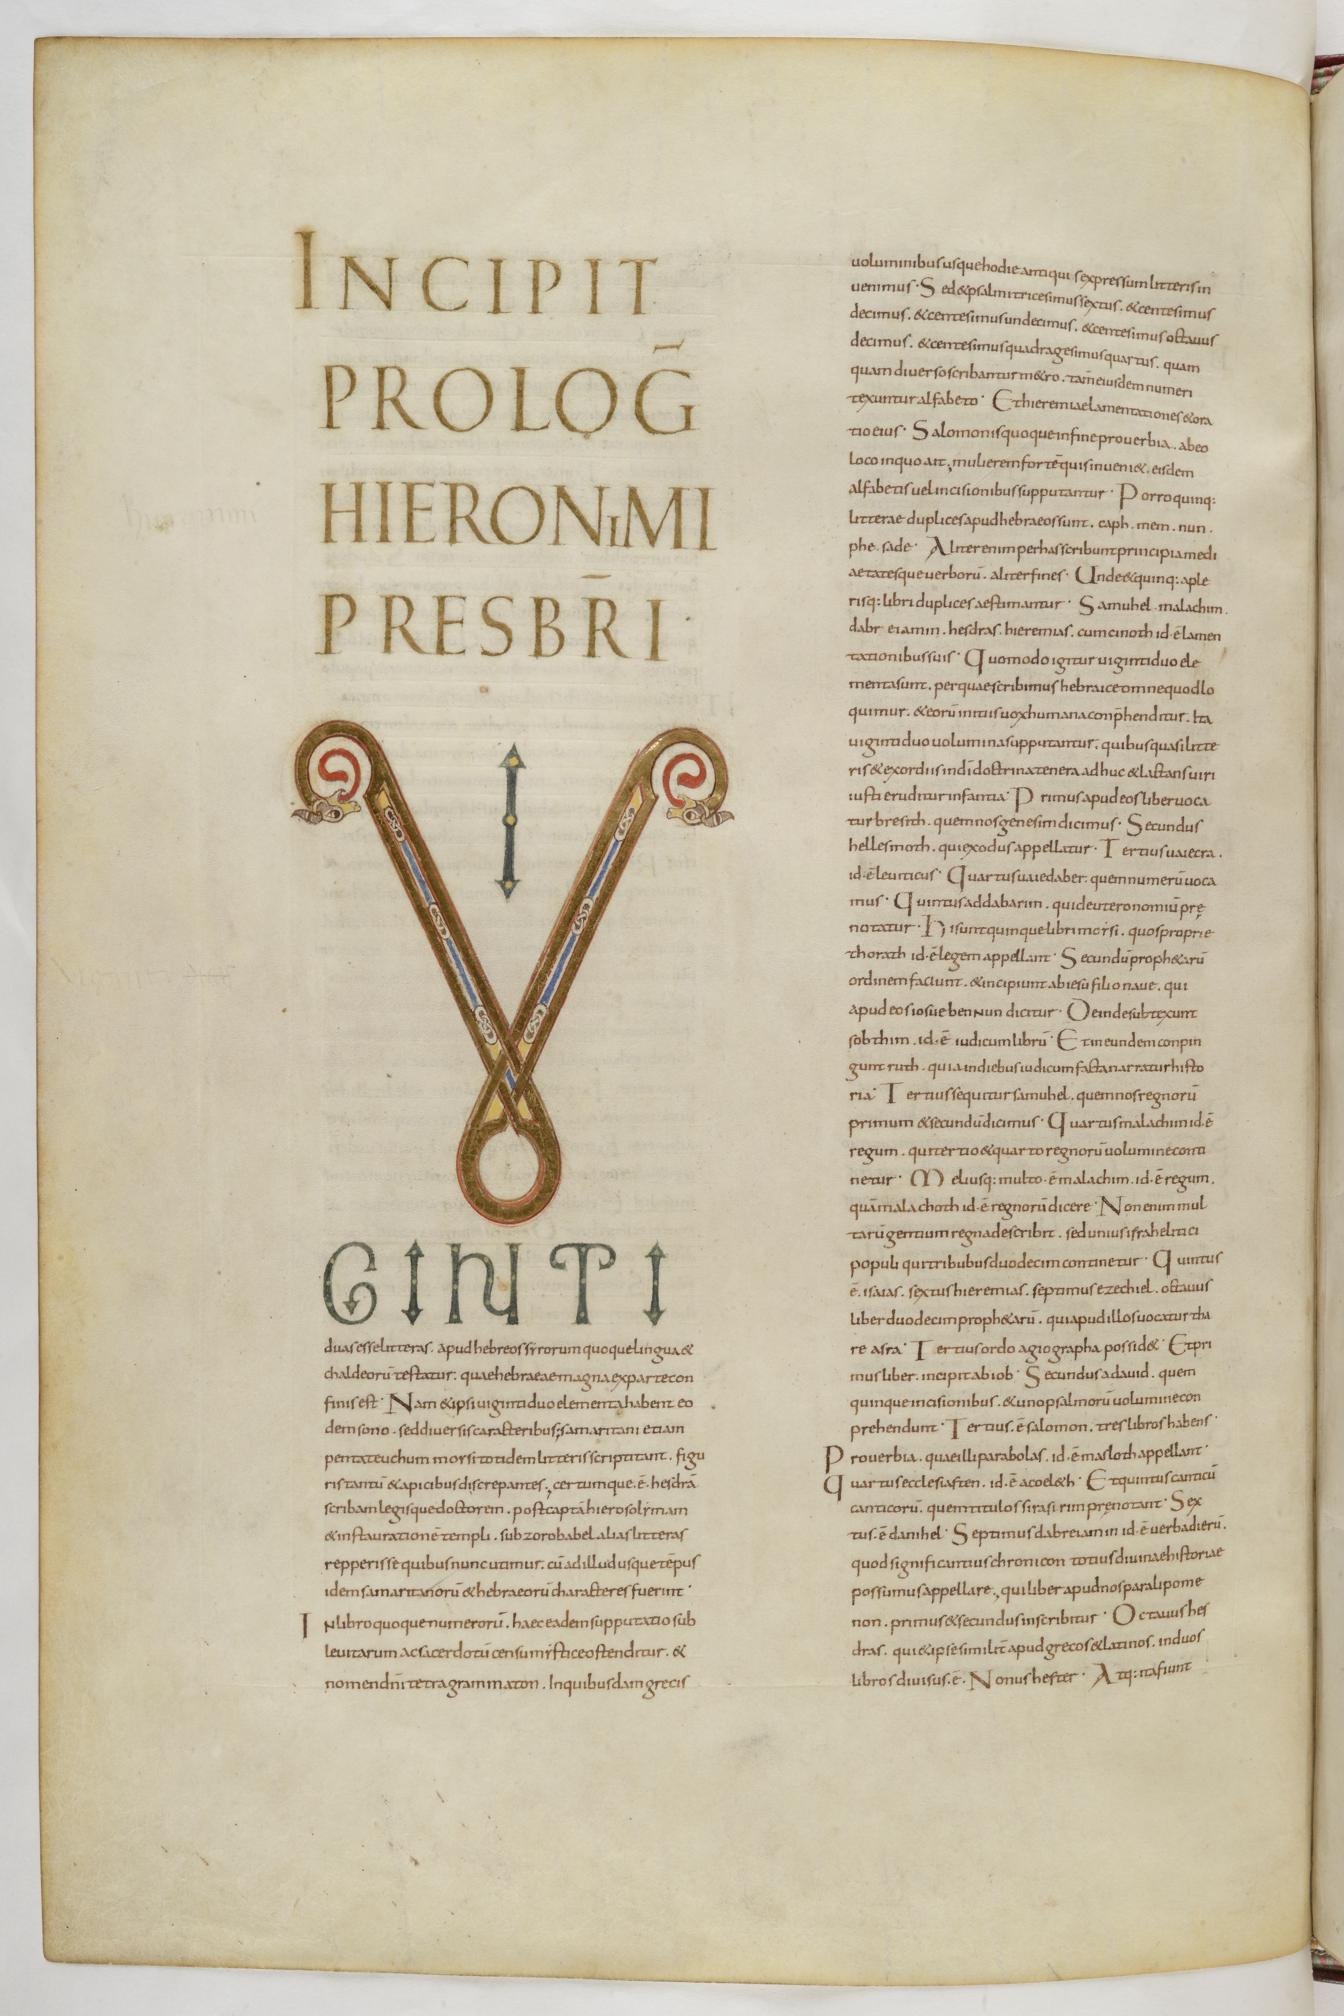 INCIPIT
PROLOḠ
HIERONIMI
PRESBR̄I·
VI
GINTI
duas esse litteras. apud hebreos syrorum quoque lingua &
chaldeorū testatur. quae hebraeae magna ex parte con
finis est· Nam & ipsi uiginti duo elementa habent eo
dem sono. sed diuersis caracteribus; samaritani etiam
pentateuchum morsi totidem litteris scriptitant. figu
ris tantū & apicibus discrepantes; certumque. ē. hesdrā
scribam legisque doctorem. post captā hierosolymam
& instaurationē templi. sub zorobabel alias litteras
repperisse quibus nunc utimur. cū ad illud usque tēpus
idem samaritanorū & hebraeorū characteres fuerint·
In libro quoque numerorū. haec eadem supputatio sub
leuitarum ac sacerdotū censu mystice ostenditur. &
nomen dn̄i tetragrammaton. In quibusdam grecis
uoluminibus usque hodie antiquis expressum litteris in
uenimus· Sed & psalmi tricesimus sextus. & centesimus
decimus. & centesimus undecimus. & centesimus octauus
decimus. & centesimus quadragesimus quartus. quam
quam diuerso scribantur m&ro. tam̄ eiusdem numeri
texuntur alfabeto· Et hieremiae lamentationes & ora
tio eius· Salomonis quoque in fine prouerbia. ab eo
loco in quo ait; mulierem fortē quis inueni&. eisdem
alfabetis uel incisionibus supputantur· Porro quinq:
litterae duplices apud hebraeos sunt. caph. mem. nun.
phe. sade· Aliter enim per has scribunt principia medi
aetatesque uerborū. aliter fines· Unde & quinq: a ple
risq: libri duplices aestimantur· Samuhel. malachim.
dabreiamin. hesdras. hieremias. cum cinoth id.ē lamen
tationibus suis· Quomodo igitur uiginti duo ele
menta sunt. per quae scribimus hebraice omne quod lo
quimur. & eorū initiis uox humana conp̄henditur. Ita
uiginti duo uolumina supputantur. quibus quasi litte
ris & exordiis in dī doctrina tenera adhuc & lactans uiri
iusti eruditur infantia· Primus apud eos liber uoca
tur bresith. quem nos genesim dicimus· Secundus
hellesmoth. qui exodus appellatur· Tertius uaiecra.
id.ē leuiticus· Quartus uaiedaber. quem numerū uoca
mus· Quintus addabarim. qui deuteronomiū prę
notatur· Hi sunt quinque libri morsi. quos proprie
thorath id.ē legem appellant· Secundū proph&arū
ordinem faciunt. & incipiunt ab iesu filio naue. qui
apud eos iosue ben nun dicitur· Deinde subtexunt
sobthim. id.ē iudicum librū· Et in eundem conpin
gunt ruth. quia in diebus iudicum facta narratur histo
ria· Tertius sequitur samuhel. quem nos regnorū
primum & secundū dicimus· Quartus malachim id.ē
regum. qui tertio & quarto regnorū uolumine conti
netur· Meliusq: multo.ē malachim. id.ē regum.
quā malachoth id.ē regnorū dicere· Non enim mul
tarū gentium regna describit. sed unius israhelitici
populi qui tribubus duodecim continetur· Quintus
ē. isaias. sextus hieremias. septimus ezechiel. octauus
liber duodecim proph&arū. qui apud illos uocatur tha
re asra· Tertius ordo agiographa possid&· Et pri
mus liber. incipit ab iob· Secundus a dauid. quem
quinque incisionibus. & uno psalmorū uolumine con
prehendunt· Tertius.ē salomon. tres libros habens·
Prouerbia. quae illi parabolas. id.ē masloth appellant·
Quartus ecclesiasten. id.ē acoel&h· Et quintus canticū
canticorū. quem titulo sirasirim prenotant· Sex
tus.ē danihel· Septimus dabreiamin id.ē uerba dierū.
quod significantius chronicon totius diuinae historiae
possumus appellare; qui liber apud nos paralipome
non. primus & secundus inscribitur· Octauus hes
dras. qui & ipse similit̄ apud grecos & latinos. in duos
libros diuisus.ē· Nonus hester· Atq: ita fiunt